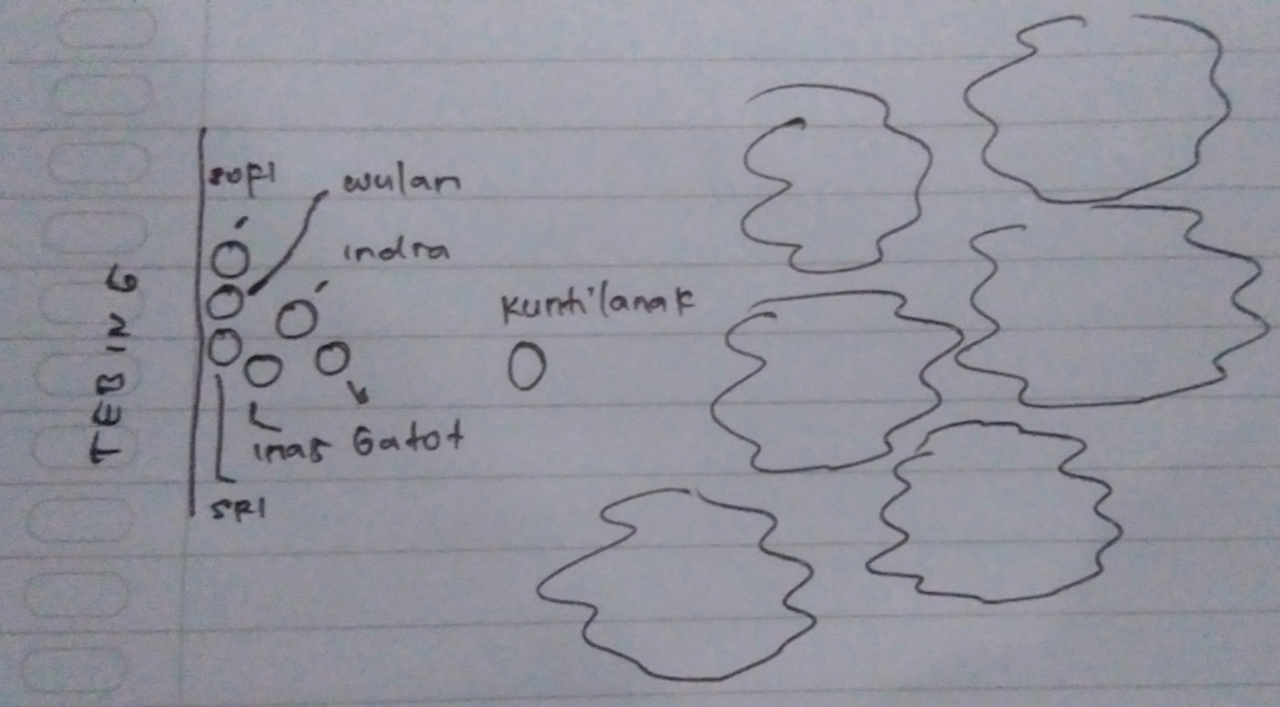 TEBING
SOFI
wulan
indra
Kuntilanak
inas Gatot
SRI